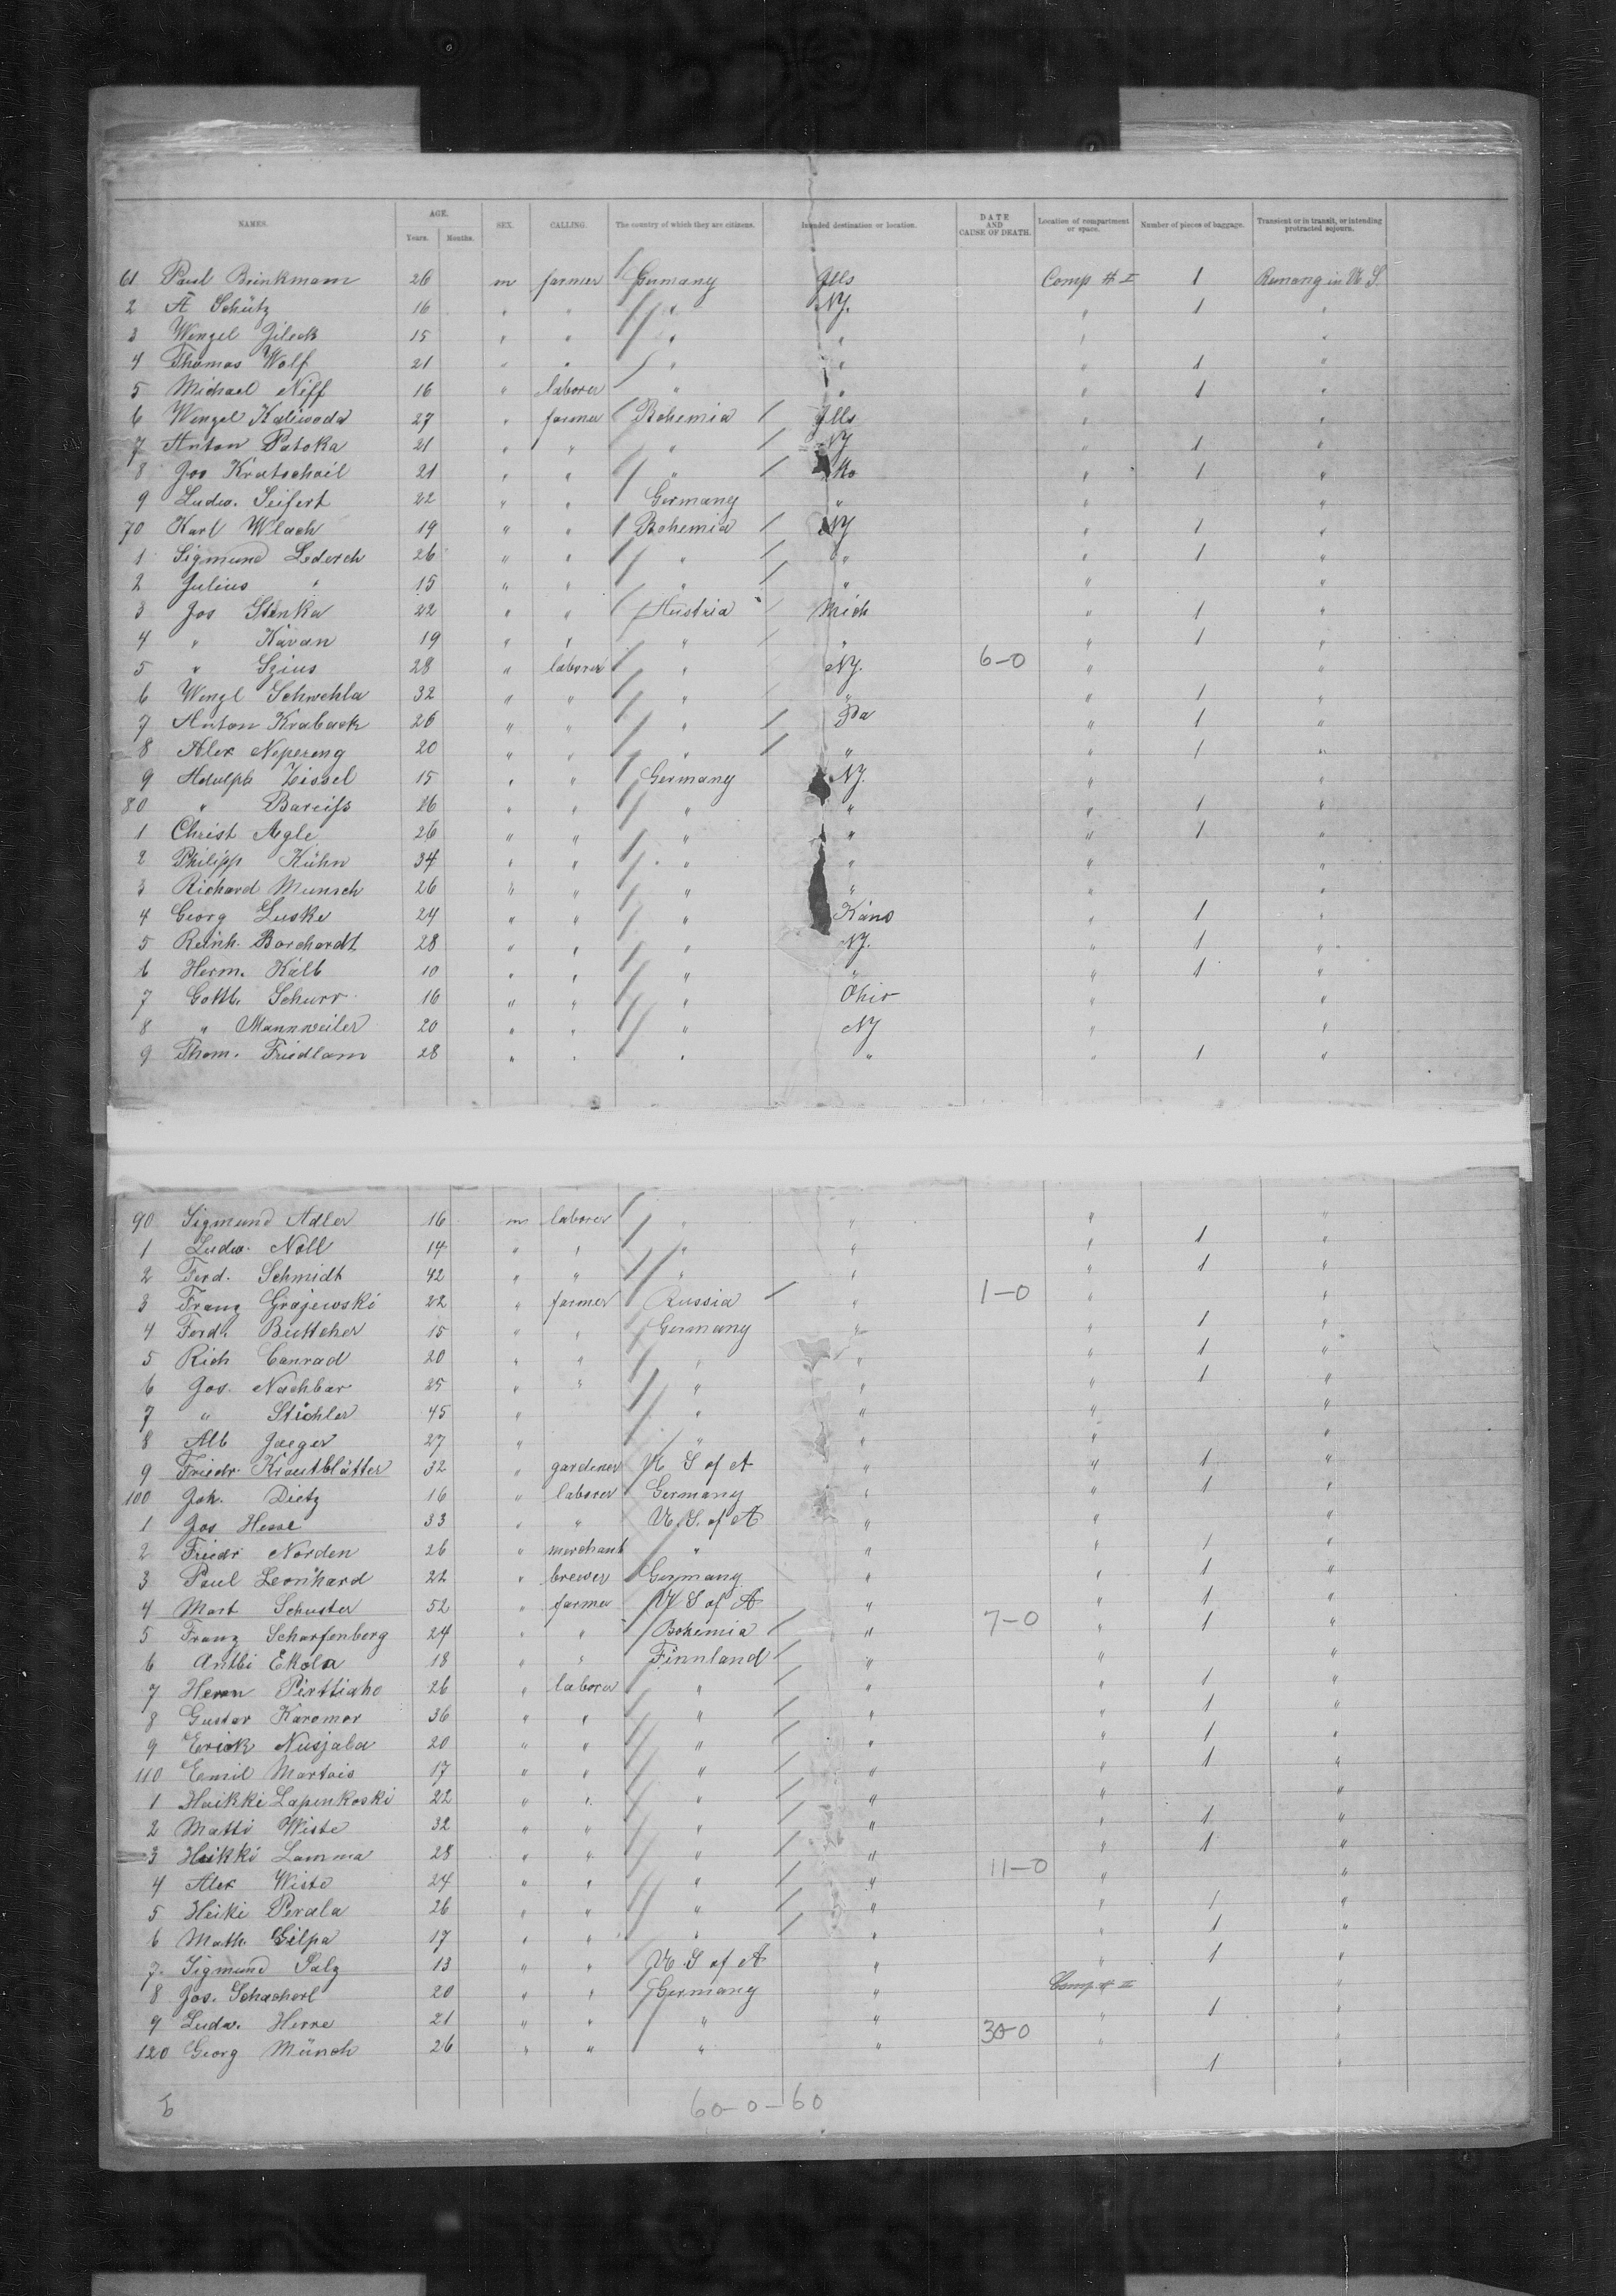 NAMES. AGE. Years. Months. SEX. CALLING. The country of which they are citizens. Intended destination or location. DATE AND CAUSE OF DEATH. Location of compartment or space. Number of pieces of baggage. Transient or in transit, or intending protracted sojourn.
61 Paul Brinkmann 26 m farmer Germany Ills Comp # I 1 Remang in U. S.
2 A Schütz 16 " " " NY. " 1 "
3 Wenzel Jileck 15 " " " " " "
4 Thomas Wolf 21 " " " " " 1 "
5 Michael Niff 16 " laborer " " " 1 "
6 Wenzel Kaliwoda 27 " farmer Bohemia Ills " "
7 Anton Patoka 21 " " " NY " 1 "
8 Jos Kratschoil 21 " " " Mo " 1 "
9 Ludw. Seifert 22 " " Germany " " "
70 Karl Wlach 19 " " Bohemia NY " 1 "
1 Sigmund Lederch 26 " " " " " 1 "
2 Julius " 15 " " " " " "
3 Jos Stinka 22 " " Austria Mich " 1 "
4 " Kavan 19 " " " " " 1 "
5 " Szius 28 " laborer " NY. 6-0 " "
6 Wenzl Schwehla 32 " " " " " 1 "
7 Anton Kraback 26 " " " Pa " 1 "
8 Alex Nepereny 20 " " " " " 1 "
9 Adolph Zissel 15 " " Germany NY. " "
80 " Bareiss 26 " " " " " 1 "
1 Christ Agle 26 " " " " " 1 "
2 Philipp Kühn 34 " " " " " "
3 Richard Munsch 26 " " " " " "
4 Georg Luske 24 " " " Kans " 1 "
5 Reinh. Borchardt 28 " " " NY. " 1 "
6 Herm. Kalb 10 " " " " " 1 "
7 Gottl. Schurr 16 " " " Ohio " "
8 " Mannweiler 20 " " " NY " "
9 Thom. Friedlam 28 " " " " " 1 "
90 Sigmund Adler 16 m laborer " " " "
1 Ludw. Noll 14 " " " " " 1 "
2 Ferd. Schmidt 42 " " " " " 1 "
3 Franz Grajewski 22 " farmer Russia " 1-0 " "
4 Ferd. Buttcher 15 " " Germany " " 1 "
5 Rich Conrad 20 " " " " " 1 "
6 Jos. Nachbar 25 " " " " " 1 "
7 " Stichler 45 " " " " "
8 Alb Jaeger 27 " " " " "
9 Friedr. Krautblätter 32 " gardener U. S of A " " 1 "
100 Joh. Dietz 16 " laborer Germany " " 1 "
1 Jos Hesse 33 " " U. S. of A " " "
2 Friedr Norden 26 " merchant " " " 1 "
3 Paul Leonhard 22 " brewer Germany " " 1 "
4 Mart Schuster 52 " farmer U S of A " " 1 "
5 Franz Scharfenberg 24 " " Bohemia " 7-0 " 1 "
6 Antti Ekola 18 " " Finnland " " "
7 Herm Pirttiaho 26 " laborer " " " 1 "
8 Gustav Karomor 36 " " " " " 1 "
9 Erick Nusjala 20 " " " " " 1 "
110 Emil Martois 17 " " " " " 1 "
1 Heikki Lapenkoski 22 " " " " " "
2 Matti Wiste 32 " " " " " 1 "
3 Heikki Lamma 28 " " " " " 1 "
4 Alex Wiste 24 " " " " 11-0 " "
5 Heiki Perala 26 " " " " " 1 "
6 Math. Gilpa 17 " " " " " 1 "
7 Sigmund Salz 13 " " U. S of A " " 1 "
8 Jos. Schacherl 20 " " Germany " Comp # II "
9 Ludw. Herre 21 " " " " " 1 "
120 Georg Münch 26 " " " " 30-0 " 1 "
60-0-60